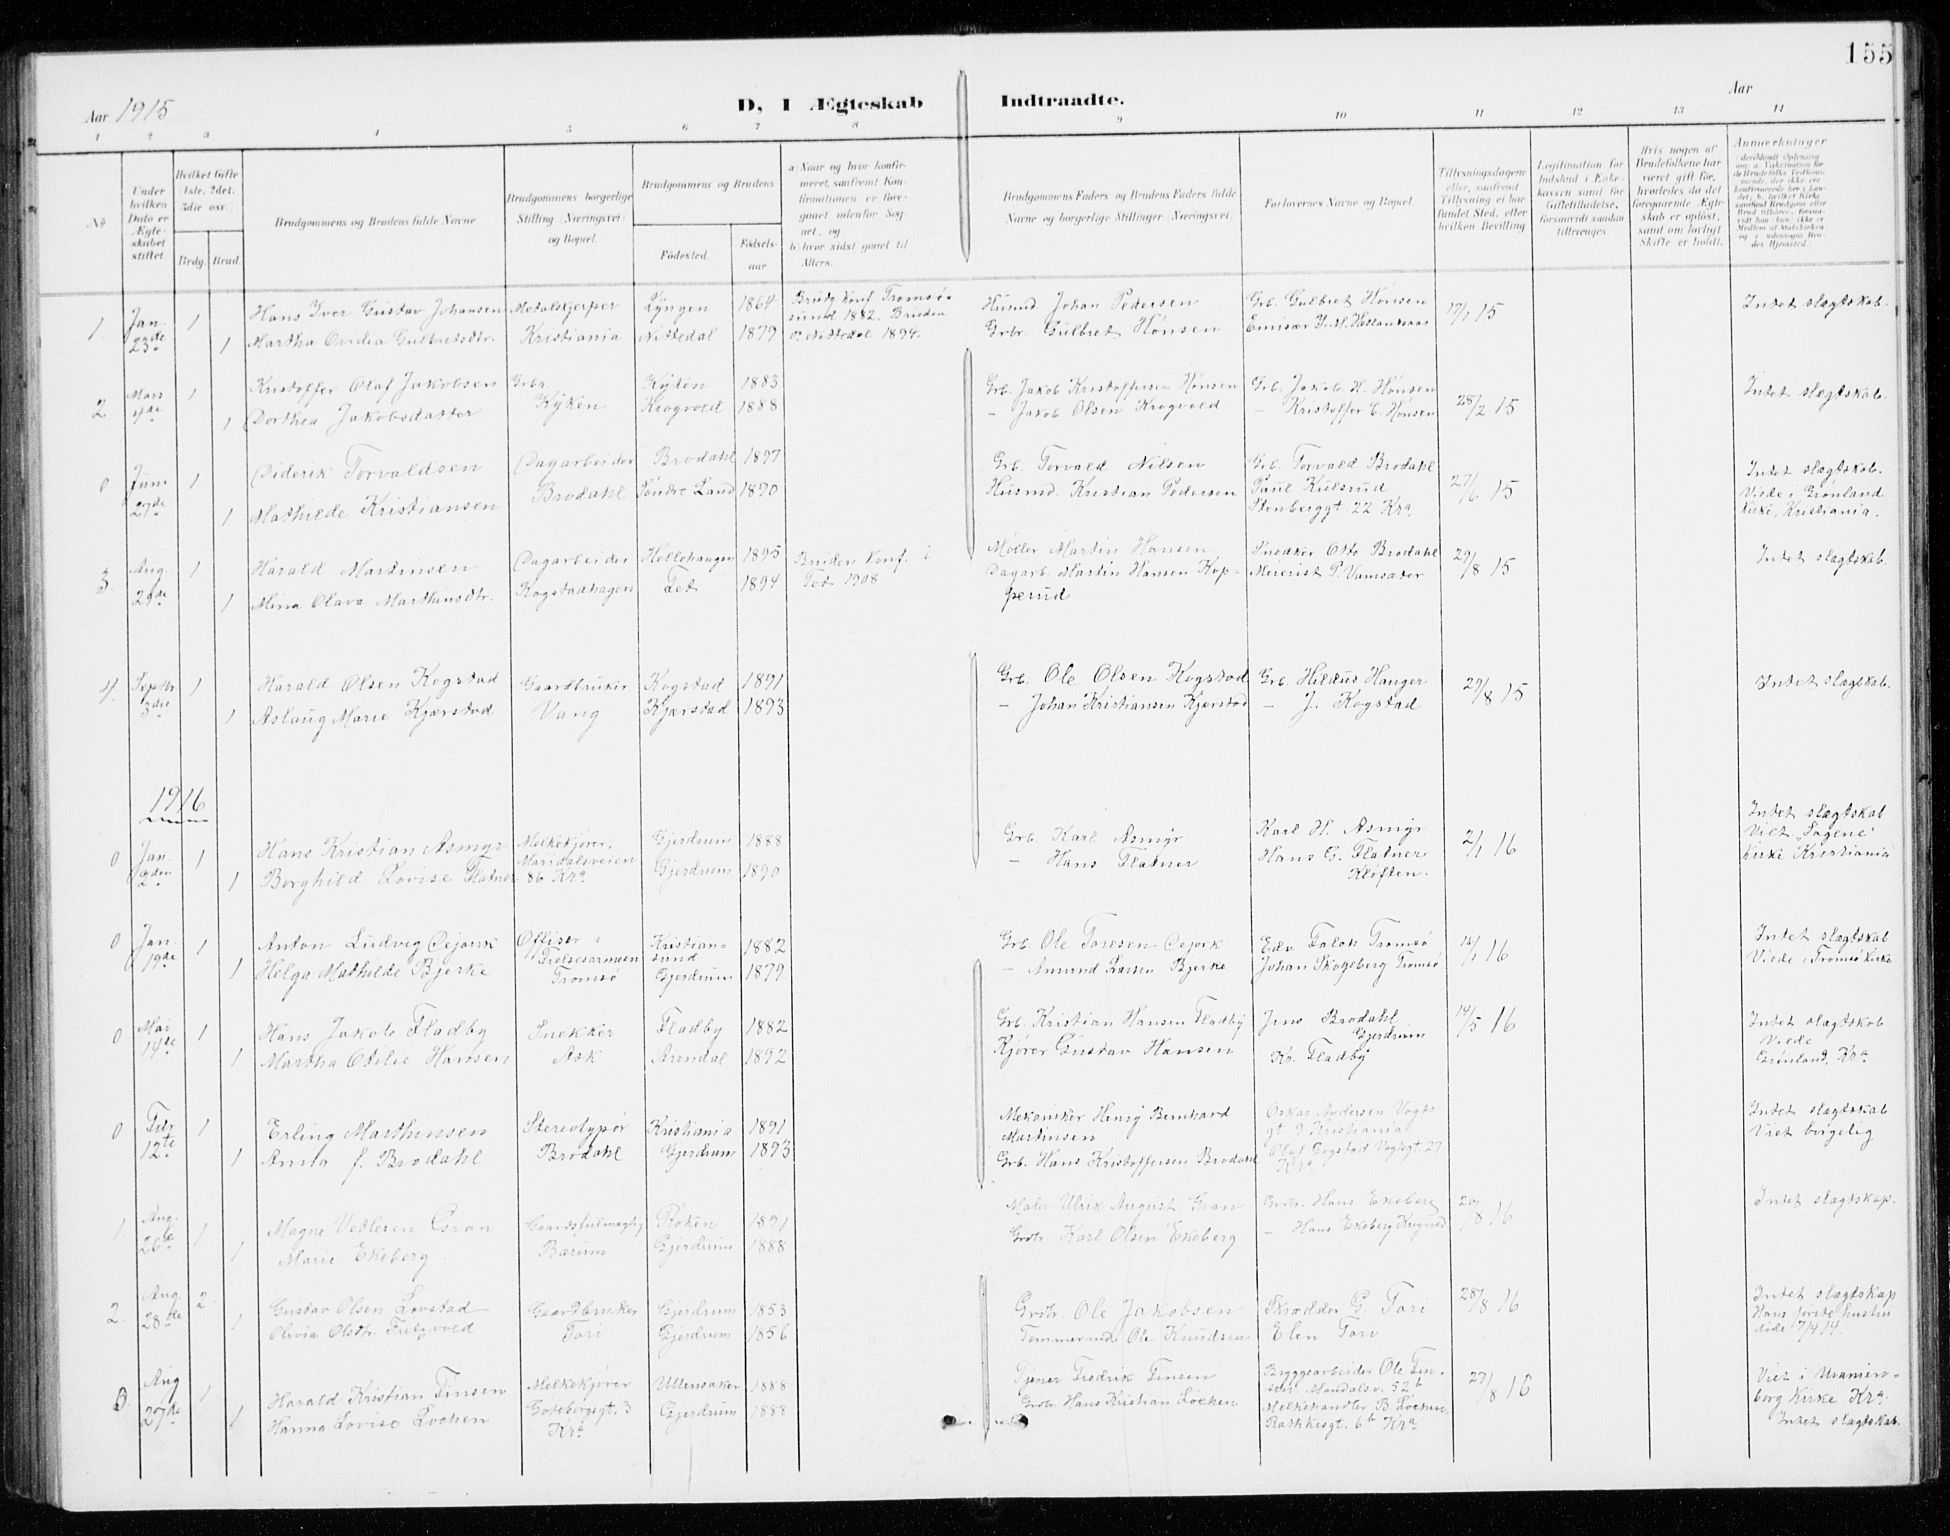 155
Aar 1915
D, I Ægteskab Indtraadte.
Aar
1 2 3 4 5 6 7 8 9 10 11 12 13 14
No
Under hvilken Dato er Ægteskabet stiftet.
Hvilket Gifte (1ste, 2det, 3die osv.)
Brdg. Brud.
Brudgommens og Brudens fulde Navne
Brudgommens borgerlige Stilling (Næringsvei) og Bopæl.
Brudgommens og Brudens
Fødested.
Fødselsaar
a. Naar og hvor konfirmeret, saafremt Konfirmationen er foregaaet udenfor Sognet, og
b. hvor sidst gaaet til Alters.
Brudgommens Faders og Brudens Faders fulde Navne og borgerlige Stillinger (Næringsvei)
Forlovernes Navne og Bopæl.
Tillysningsdagene eller, saafremt Tillysning ei har fundet Sted, efter hvilken Bevilling
Legitimation for Indskud i Enkekassen samt for Giftetilladelse, forsaavidt saadan tiltrænges.
Hvis nogen af Brudefolkene har været gift før, hvorledes da det foregaaende Ægteskab er opløst, samt om lovligt Skifte er holdt.
Anmerkninger
1. Jan. 23de 1 Hans Iver Gustav Johansen Metalskjerper Lyngen 1864 Brudg. konf. Tromsøsund 1882. Bruden Husmd. Johan Pedersen Grb. Gulbret Hønsen 17/1 15 Intet slægtskab.
1 Martha Ovidia Gulbretsdtr. Kristiania Nittedal 1879 Nittedal 1894. Grbr. Gulbret Hønsen Emisær
2 Mars 1 Kristoffer Olaf Jakobsen Grbr. Kyken 1883 Grb. Jakob Kristoffersen Hønsen Grb. Jakob H. Hønsen 28/2 15 Intet slægtskab.
1 Dorthea Jakobsdatter Kyken Krogvold 1888 – Jakob Olsen Krogvold – Kristoffer E. Hønsen
0 Juni 27de 1 Diderik Torvaldsen Dagarbeider Brodahl 1897 Grb. Torvald Nilsen Grb. Torvald Brodahl 27/6 15 Intet slægtskab.
1 Mathilde Kristiansen Brodahl Søndre Land 1890 Husmd. Kristian Pedersen Paul Kulsrud Stenberggt. 22 Kra. Viede i Grønland kirke, Kristiania.
3. Aug. 29de 1 Harald Martinsen Dagarbeider Hellehaugen 1895 Bruden konf. i Møller Martin Hansen Snedker Otto Brodahl 29/8 15 Intet slægtskab
1 Mina Olava Marthinsdtr. Kogstadhagen 1894 1908 Dagarb. Martin Hansen Kopperud Meierist P. Vamsæter
4. Septbr. 3die 1 Harald Olsen Kogstad Gaardbruker Kogstad 1891 Grb. Ole Olsen Kogstad Grb. Hildeus Hauger 29/8 15 Intet slægtskab.
1 Aslaug Marie Kjærstad Vang Kjærstad 1893 – Johan Kristiansen Kjærstad – J. Kogstad
1916
0 Jan. 2den 1 Hans Kristian Asmyr Melkekjører, Gjerdrum 1888 Grb. Karl Asmyr Karl H. Asmyr 2/1 16 Intet slægtskab
1 Borghild Lovise Flatner Maridalsveien 86 Kra. Gjerdrum 1890 – Hans Flatner Hans G. Flatner Kløften. Viet "Sagene" kirke Kristiania
0 Jan. 19de 1 Anton Ludvig Offiser i Kristiansund 1882 Grb Ole Edv. Falch Tromsø 16/1 16 Intet slægtskab
1 Helga Mathilde Bjerke Frelsesarmeen Tromsø Gjerdrum 1879 – Amund Larsen Bjerke Johan Skogeberg Tromsø Viede i Tromsø kirke
0 Mai 14de 1 Hans Jakob Fladby Snekker Fladby 1882 Grb. Kristian Hansen Fladby Jens Brodahl Gjerdrum 14/5 16 Intet slægtskab
1 Martha Otilie Hansen Ask Arendal 1892 Kjører Gustav Hansen Kr. Fladby Viede Grønland, Kra
0 Febr 12te 1 Erling Marthinsen Stereotypør Kristiania 1891 Mekaniker Henry Bernhard Martinsen Oskar Andersen Vogts gt 9 Kristiania Intet slægtskab
1 Anna f. Brodahl Brodahl Gjerdrum 1893 Grb. Hans Kristoffersen Brodahl Olaf Gogstad Vogtsgt. 27 Kra. Viet borgelig
1. Aug. 26de 1 Magne Vetlesen Gran Gaardsfulmægtig Røken 1891 Maler Ulrik August Gran Grdbr. Hans Ekeberg 20/8 16 Intet slægtskap.
1 Marie Ekeberg Bærum Gjerdrum 1888 Grdbr. Karl Olsen Ekeberg – Hans Ekeberg Krogvold
2. Aug. 28de 2 Gustav Olsen Løvstad Gaardbruker Gjerdrum 1853 Grdbr. Ole Jakobsen Skrædder G. Tori 28/8 16 Intet slægtskap
1 Olivia Olsdtr. Tori Gjerdrum 1856 Tømmermd. Ole Knudsen Elen Tori Hans første hustru døde 7/4 14.
0. Aug 27de 1 Harald Kristian Finsen Melkekjører Ullensaker 1888 Tjener Fredrik Finsen Bryggearbeider Ole Finsen. 52b 27/8 16 Viet i Uranienborg kirke Kra.
1 Hanna Lovise Løchen Gøteborgsgt. 3 Kra Gjerdrum 1888 Grdbr. Hans Kristian Løchen Melkehandler B. Løchen Rathkesgt. 6b Kra Intet slægtskab.